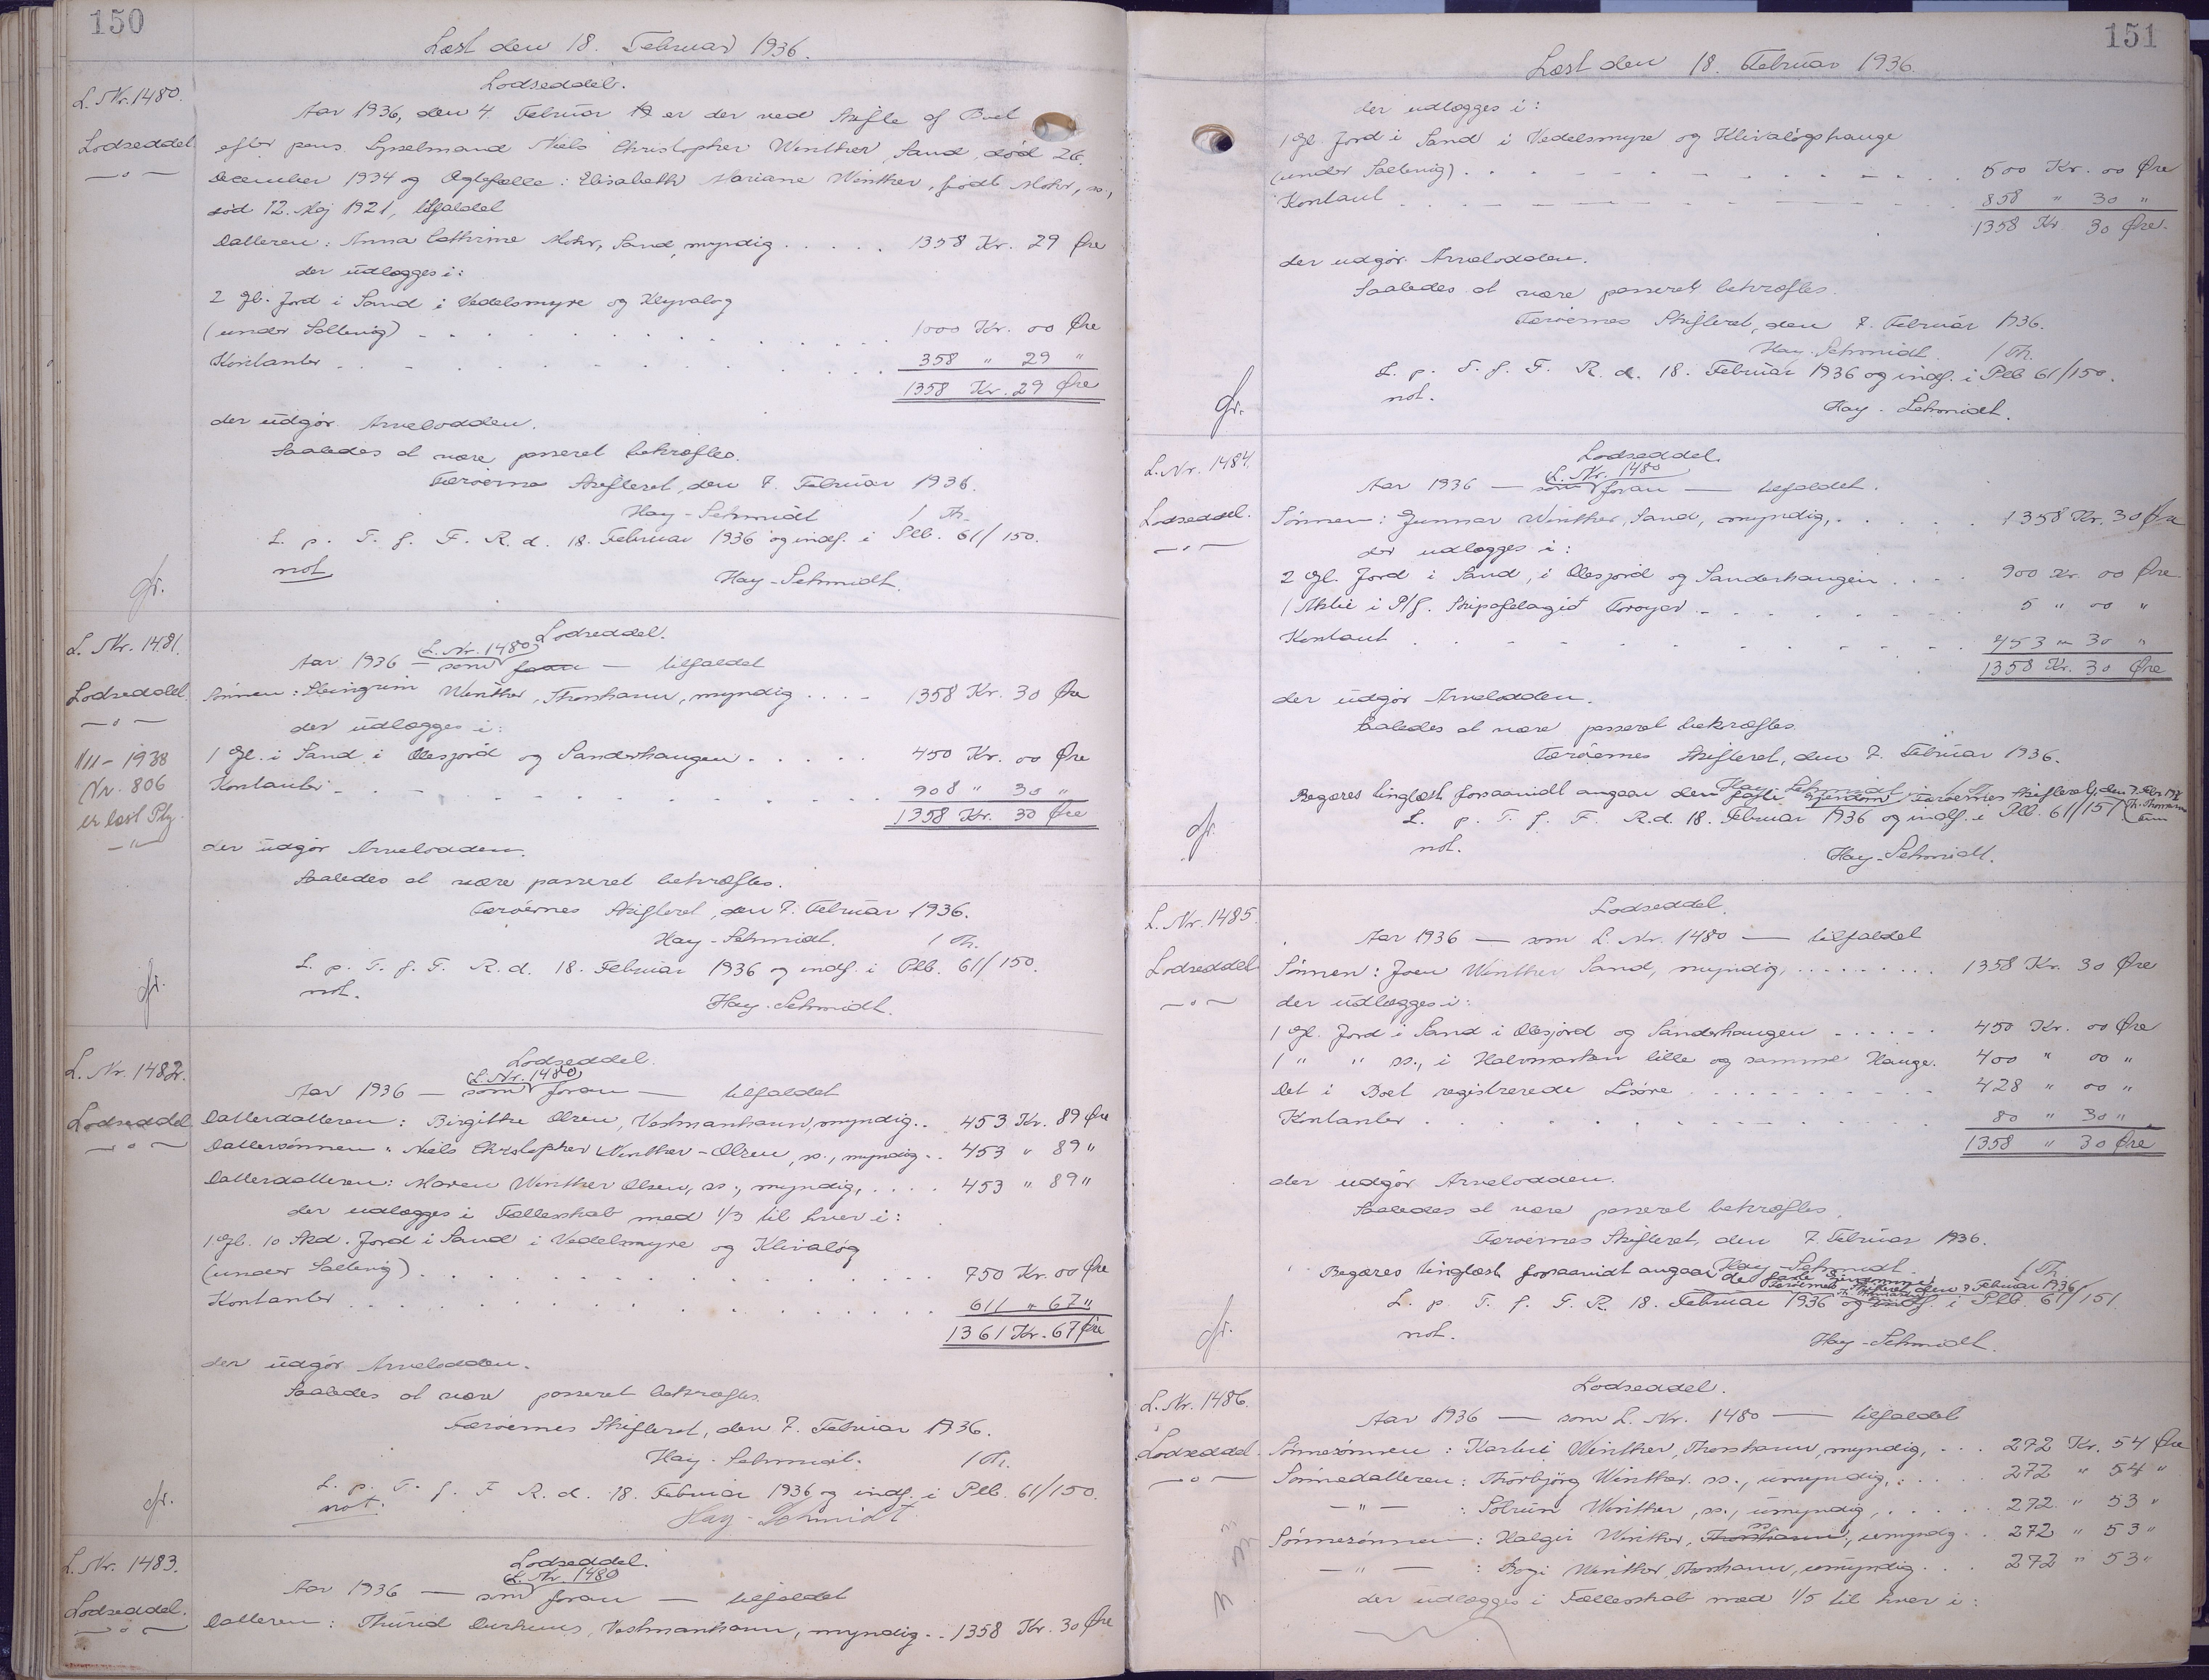 150
Læst den 18. Februar 1936.
L. Nr. 1480.
Lodseddel
Lodseddel.
Aar 1936, den 4. Februar er der ved Skifte af Boet
efter pens. Sysselmand Niels Christopher Winther, Sand, død 26.
December 1934 og Ægtefælle: Elisabeth Mariane Winther, født Mohr, ss.,
død 12. Maj 1921, tilfaldet
Datteren: Anna Cathrine Mohr, Sand, myndig . . . . . 1358 Kr. 29 Øre
der udlægges i:
2 Gl. Jord i Sand i Vedelsmyre og Klyvalog
(under Saltvig) . . . . . 1000 Kr. 00 Øre
Kontanter . . . . . 358 " 29 "
1358 Kr. 29 Øre
der udgör Arvelodden.
Saaledes at være passeret bekræftes.
Færöernes Skifteret, den 7. Februar 1936.
Hay-Schmidt / Th.
L. p. T. f. F. R. d. 18. Februar 1936 og indf. i Plb. 61/150.
not.
Hay-Schmidt.
L. Nr. 1481.
Lodseddel.
1/11-1938
Nr. 806
er læst Plg.
Lodseddel.
L. Nr. 1480
Aar 1936 — som foran — tilfaldet
Sönnen: Steingrim Winther, Thorshavn, myndig . . . . 1358 Kr. 30 Øre
der udlægges i:
1 Gl. i Sand i Olesjord og Sanderhaugen . . . . . 450 Kr. 00 Øre
Kontanter . . . . . 908 " 30 "
1358 Kr. 30 Øre
der udgör Arvelodden.
Saaledes at være passeret bekræftes.
Færöernes Skifteret, den 7. Februar 1936.
Hay-Schmidt. / Th.
L. p. T. f. F. R. d. 18. Februar 1936 og indf. i Plb. 61/150.
not.
Hay-Schmidt.
L. Nr. 1482.
Lodseddel
Lodseddel.
L. Nr. 1480
Aar 1936 — som foran — tilfaldet
Datterdatteren: Birgithe Olsen, Vestmanhavn, myndig . . 453 Kr. 89 Øre
Dattersönnen: Niels Christopher Winther-Olsen, ss., myndig . . 453 " 89 "
Datterdatteren: Maren Winther Olsen, ss., myndig, . . . . 453 " 89 "
der udlægges i Fællesskab med 1/3 til hver i:
1 Gl. 10 Skd. Jord i Sand i Vedelsmyre og Klivalög
(under Saltvig) . . . . . 750 Kr. 00 Øre
Kontanter . . . . . 611 " 67 "
1361 Kr. 67 Øre
der udgör Arvelodden.
Saaledes at være passeret bekræftes.
Færöernes Skifteret, den 7. Februar 1936.
Hay-Schmidt. / Th.
L. p. T. f. F. R. d. 18. Februar 1936 og indf. i Plb. 61/150.
not.
Hay-Schmidt
L. Nr. 1483.
Lodseddel.
Lodseddel.
L. Nr. 1480
Aar 1936 — som foran — tilfaldet
Datteren: Thurid Durhuus, Vestmanhavn, myndig . . 1358 Kr. 30 Øre
151
Læst den 18. Februar 1936.
der udlægges i:
1 Gl. Jord i Sand i Vedelsmyre og Klivalögshauge
(under Saltvig) . . . . . 500 Kr. 00 Øre
Kontant . . . . . 858 " 30 "
1358 Kr. 30 Øre.
der udgör Arvelodden.
Saaledes at være passeret bekræftes.
Færöernes Skifteret, den 7. Februar 1936.
Hay-Schmidt / Th.
L. p. T. f. F. R. d. 18. Februar 1936 og indf. i Plb 61/150.
not.
Hay-Schmidt.
L. Nr. 1484.
Lodseddel.
Lodseddel.
L. Nr. 1480
Aar 1936 — som foran — tilfaldet.
Sönnen: Gunnar Winther, Sand, myndig, . . . . . 1358 Kr. 30 Øre
der udlægges i:
2 Gl. Jord i Sand, i Olesjord og Sanderhaugen . . . . 900 Kr. 00 Øre
1 Aktie i P/f. Skipafelagid Foroyar . . . . . 5 " 00 "
Kontant . . . . . 453 " 30 "
1358 Kr. 30 Øre
der udgör Arvelodden.
Saaledes at være passeret bekræftes.
Færöernes Skifteret, den 7. Februar 1936.
Hay-Schmidt
Begæres tinglæst forsaavidt angaar den faste Ejendom. Færöernes Skifteret, den 7. Febr. 1936
L. p. T. f. F. R. d. 18. Februar 1936 og indf. i Plb. 61/151
not.
Hay-Schmidt.
L. Nr. 1485.
Lodseddel
Lodseddel.
Aar 1936 — som L. Nr. 1480 — tilfaldet
Sönnen: Joen Winther Sand, myndig, . . . . . 1358 Kr. 30 Øre
der udlægges i:
1 Gl. Jord i Sand i Olesjord og Sanderhaugen . . . . . 450 Kr. 00 Øre
1 " " ss., i Halvmarken lille og samme Hauge. 400 " 00 "
Det i Boet registrerede Lösöre . . . . . 428 " 00 "
Kontanter . . . . . 80 " 30 "
1358 " 30 Øre
der udgör Arvelodden.
Saaledes at være passeret bekræftes.
Færöernes Skifteret, den 7. Februar 1936.
Hay-Schmidt. / Th.
Begæres tinglæst forsaavidt angaar de faste Ejendomme.
Færöernes Skifteret, den 7. Februar 1936
L. p. T. f. F. R. 18. Februar 1936 og indf. i Plb. 61/151.
not.
Hay-Schmidt.
L. Nr. 1486.
Lodseddel
Lodseddel.
Aar 1936 — som L. Nr. 1480 — tilfaldet
Sönnesönnen: Karbui Winther, Thorshavn, myndig, . . . 272 Kr. 54 Øre
Sönnedatteren: Thorbjörg Winther. ss., umyndig, . . . . 272 " 54 "
— " — : Solrun Winther, ss., umyndig, . . . . . 272 " 53 "
Sönnesönnen: Halgir Winther, Thorshavn, ss. umyndig . . 272 " 53 "
— " — : Bogi Winther, Thorshavn, umyndig . . . 272 " 53 "
der udlægges i Fællesskab med 1/5 til hver i: